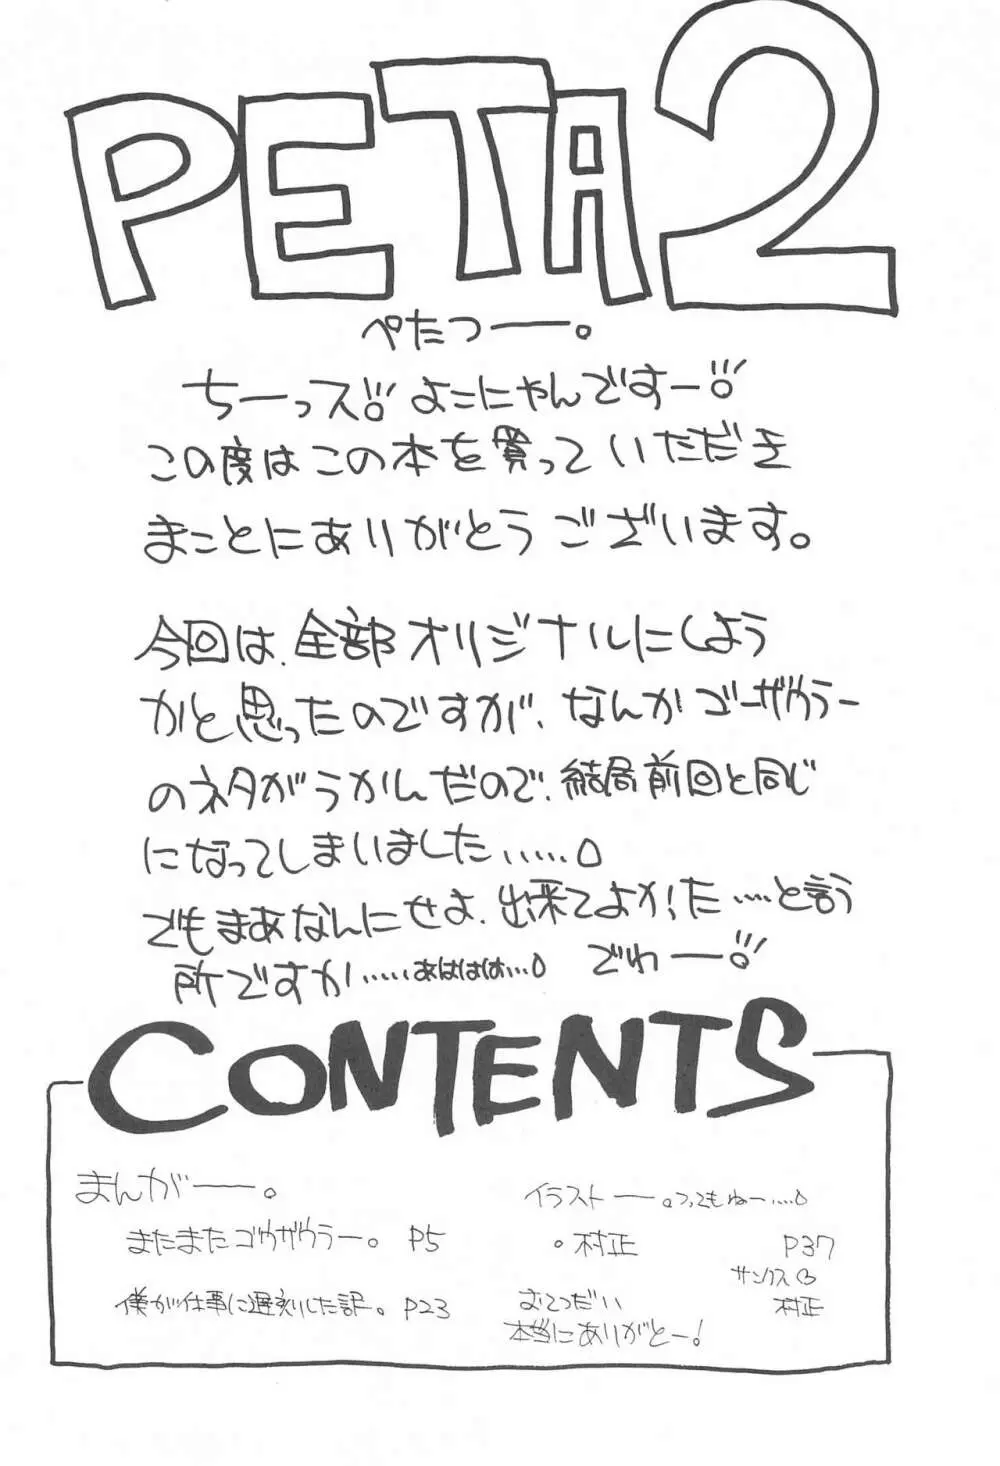 PETA2
ぺたっー。
ちーっス!! よこにゃんですー!!
この度はこの本を買っていただき
まことにありがとうございます。
今回は、全部オリジナルにしよう
かと思ったのですが、なんかゴーザウラー
のネタがうかんだので、結局前回と同じ
になってしまいました……
でもまあなんにせよ、出来てよかった……と言う
所ですか……あははは… でわー!!
CONTENTS
まんがー。
またまたゴウザウラー。 P5
僕が仕事に遅刻した訳。 P23
イラストー。つってもねー……
。村正 P37
サンクス
村正
おてつだい
本当にありがとー!